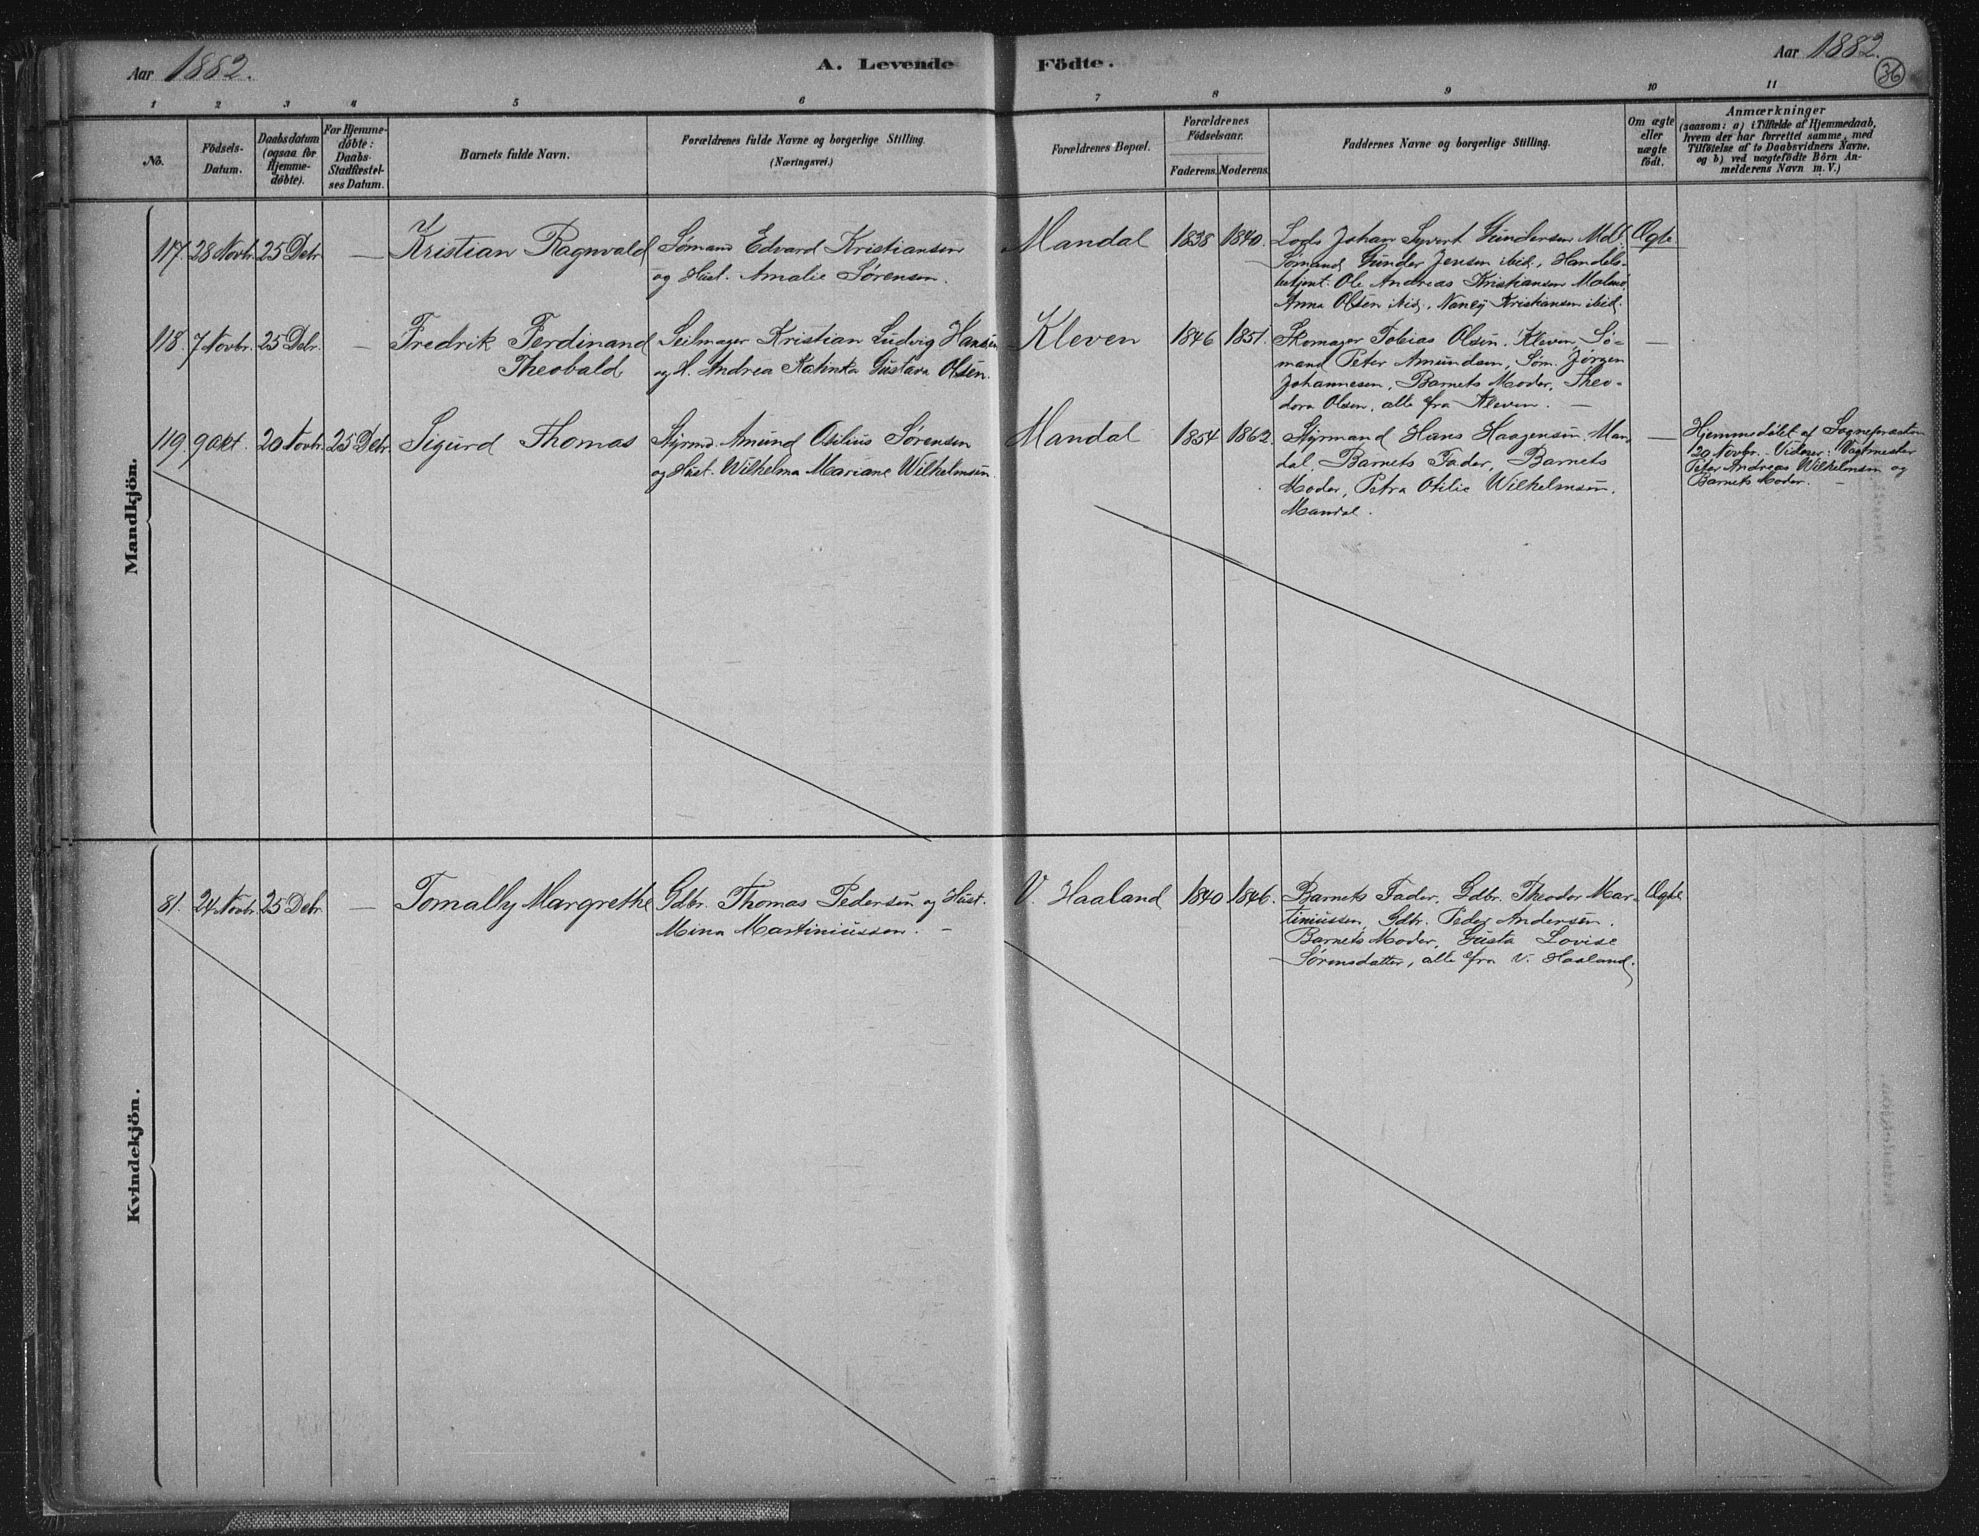 Aar 1882.
A. Levende Födte.
Aar 1882.
36
1 2 3 4 5 6 7 8 9 10 11
No.
Födsels-
Datum.
Daabsdatum
(ogsaa for
Hjemme-
døbte).
For Hjemme-
døbte:
Daabs-
Stadfæstel-
ses Datum.
Barnets fulde Navn.
Forældrenes fulde Navne og borgerlige Stilling.
(Næringsvei.)
Forældrenes Bopæl.
Forældrenes
Födselsaar.
Faderens. Moderens.
Faddernes Navne og borgerlige Stilling.
Om ægte
eller
uægte
födt.
Anmærkninger
(saasom: a) i Tilfælde af Hjemmedaab,
hvem der har forrettet samme, med
Tilföielse af to Daabsvidners Navne.
og b) ved uægtefödte Börn An-
melderens Navn m. V.)
Mandkjön.
117. 28 Novbr. 25 Debr. — Kristian Ragnvald
Sømand Edvard Kristiansen
og Hust. Amalie Sørensen.
Mandal 1838 1840.
Lods Johan Syvert Gundersen Mdl.
Sømand Gunder Jensen ibid., Handels-
betjent. Ole Andreas Kristiansen
Anna Olsen ibid., Nancy Kristiansen ibid.
Ægte
118. 7 Novbr. 25 Debr. — Fredrik Ferdinand
Theobald
Seilmager Kristian Ludvig Hansen
og H. Andrea Katinka Gustava Olsen.
Kleven 1846 1851.
Skomager Tobias Olsen, Kleven, Sø-
mand Peter Amundsen, Søm. Jørgen
Johannesen, Barnets Moder, Theo-
dora Olsen, alle fra Kleven. —
—
119. 9 Okt. 20 Novbr. 25 Debr. Sigurd Thomas
Styrmd. Amund Otilius Sørensen
og Hust. Wilhelma Mariane Wilhelmsen.
Mandal 1854 1862.
Styrmand Hans Haagensen, Man-
dal, Barnets Fader, Barnets
Moder, Petra Otilie Wilhelmsen,
Mandal.
—
Hjemmedøbt af Sognepræsten
20 Novbr. Vidner: Vagtmester
Peter Andreas Wilhelmsen og
Barnets Moder. —
Kvindekjön.
81. 24 Novbr. 25 Debr. — Tomally Margrethe
Gdbr. Thomas Pedersen og Hust.
Mina Martiniussen. —
V. Haaland 1840 1846.
Barnets Fader, Gdbr. Theodor Mar-
tiniussen, Gdbr. Peder Andersen.
Barnets Moder, Gusta Lovise
Sørensdatter, alle fra V. Haaland.
Ægte